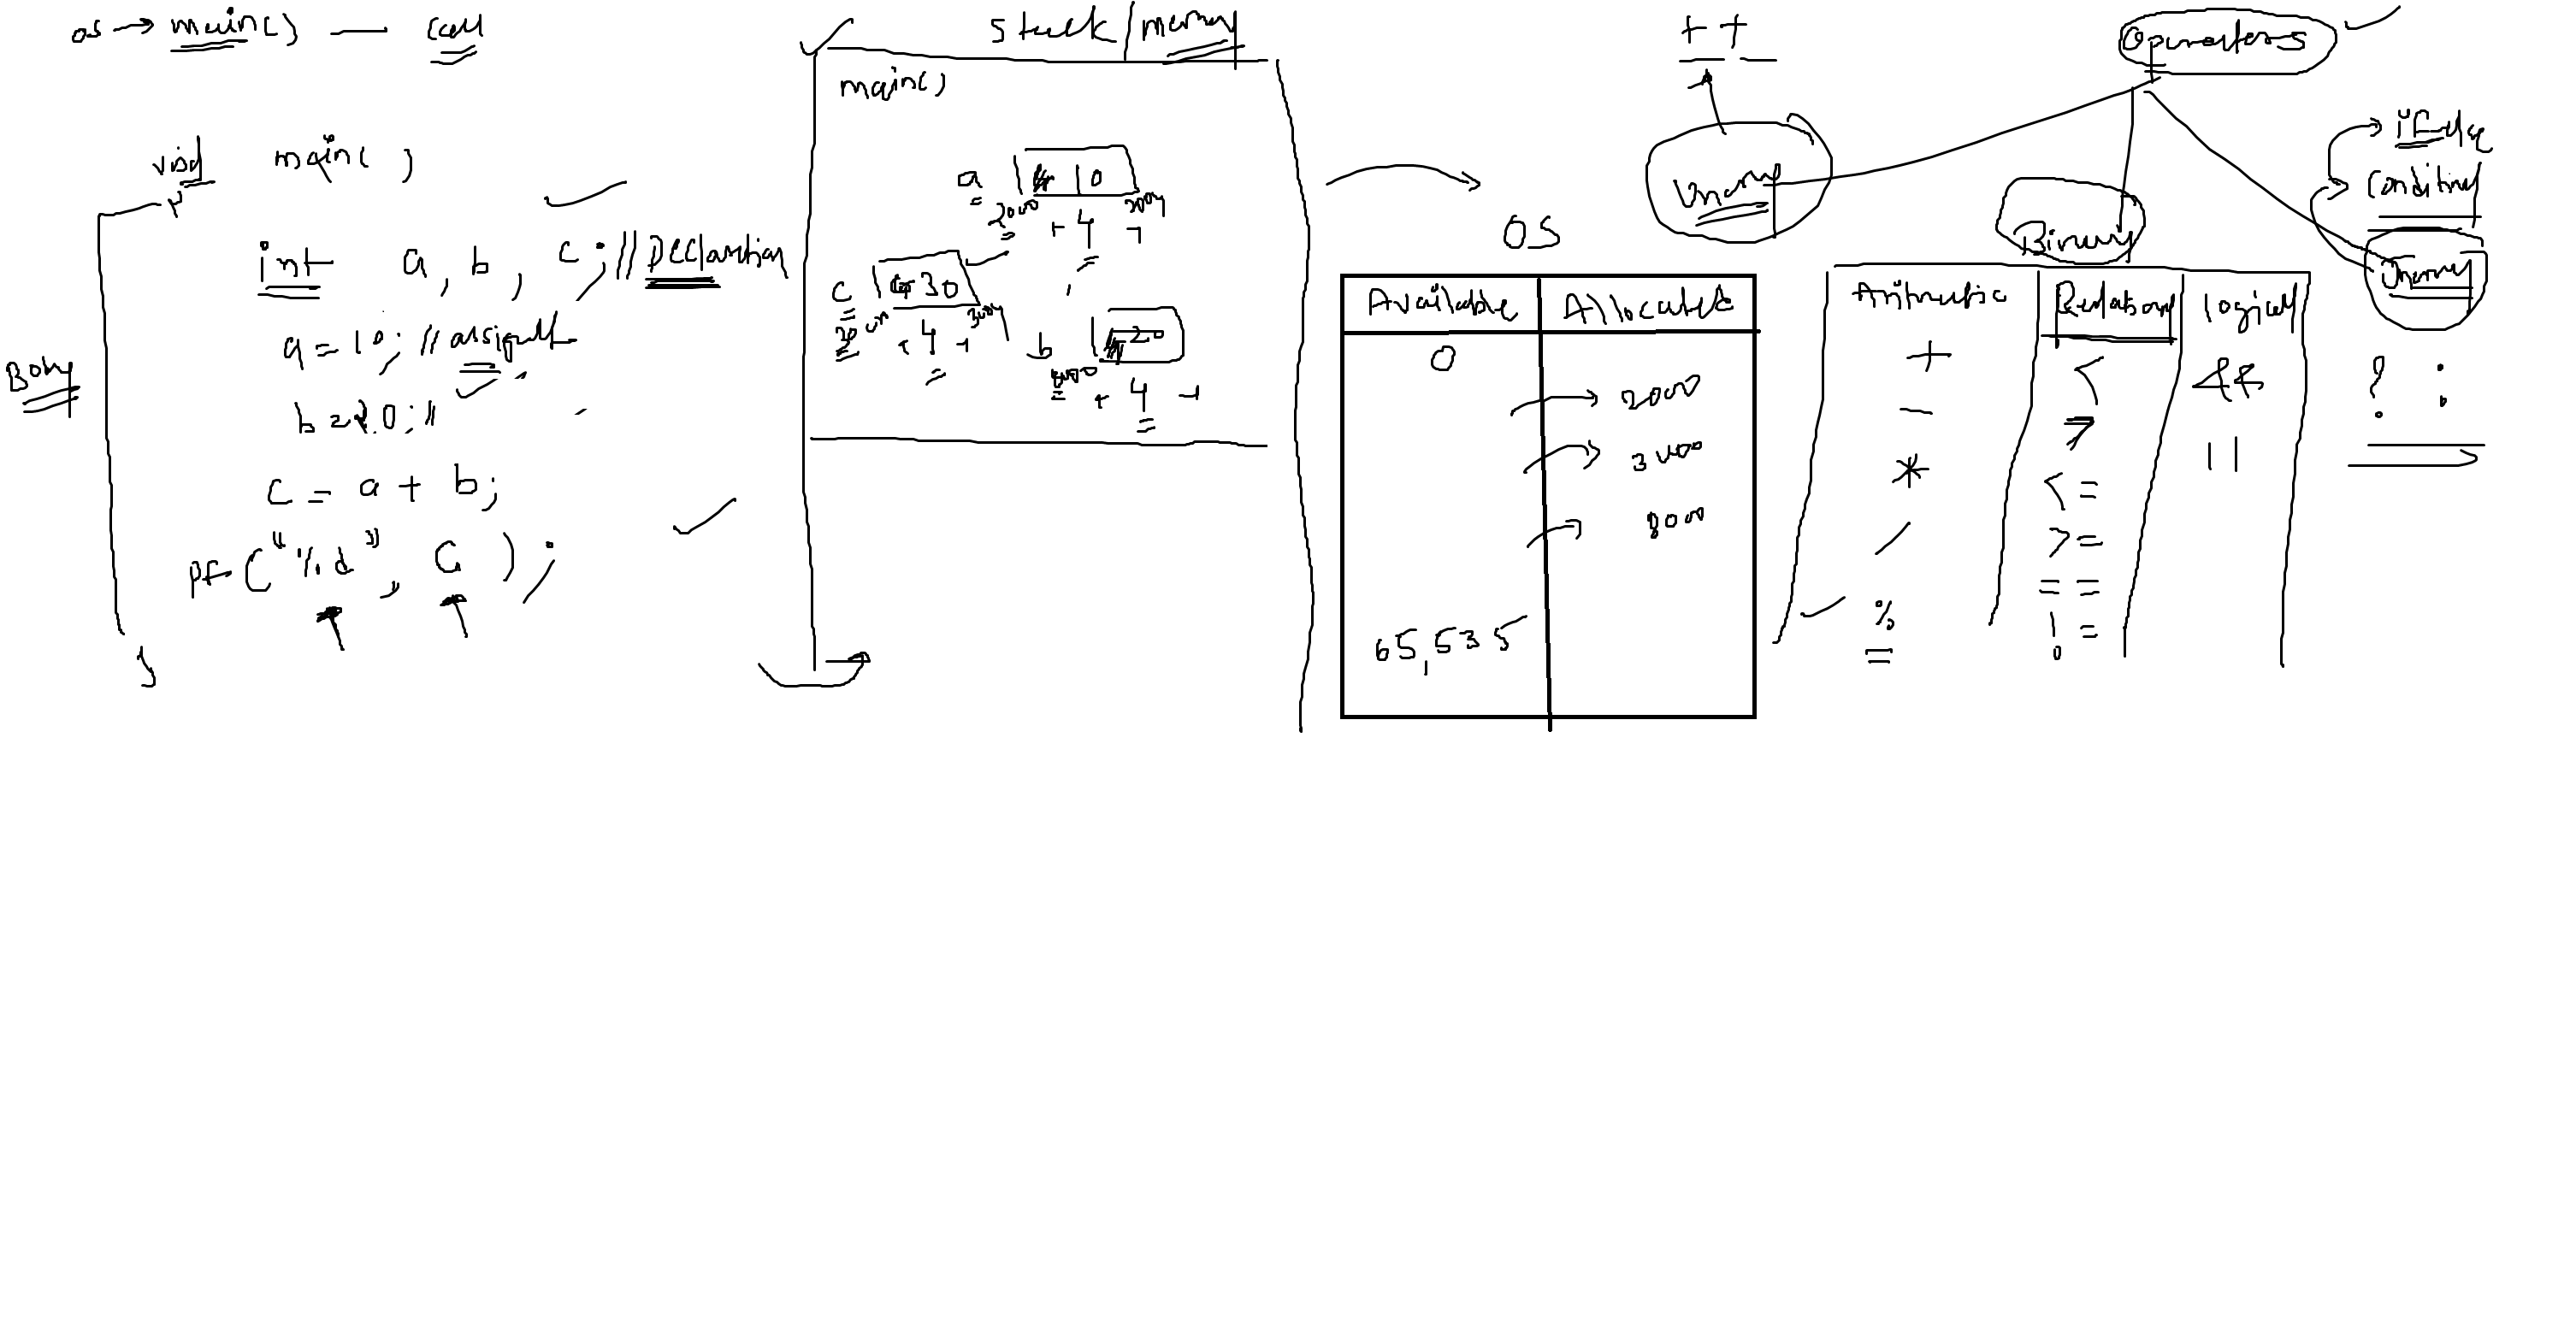 os → main() — call
void main()
int a, b, c; // Declaration
a = 10; // assign
b = 20; //
c = a + b;
pf ("%d", c);
}
Body
stack/memory
main()
a 10
2000 + 4 → 2004
c 30
3000 + 4 → 3004
b 20
8000 + 4 →
OS
Available Allocated
0
2000
3000
8000
65,535
Operators
++ --
Unary
Binary
Ternary
if else
Conditional
Aritmetic Relational logical
+ < &&
- > ||
* <=
/ >=
% ==
!=
? :